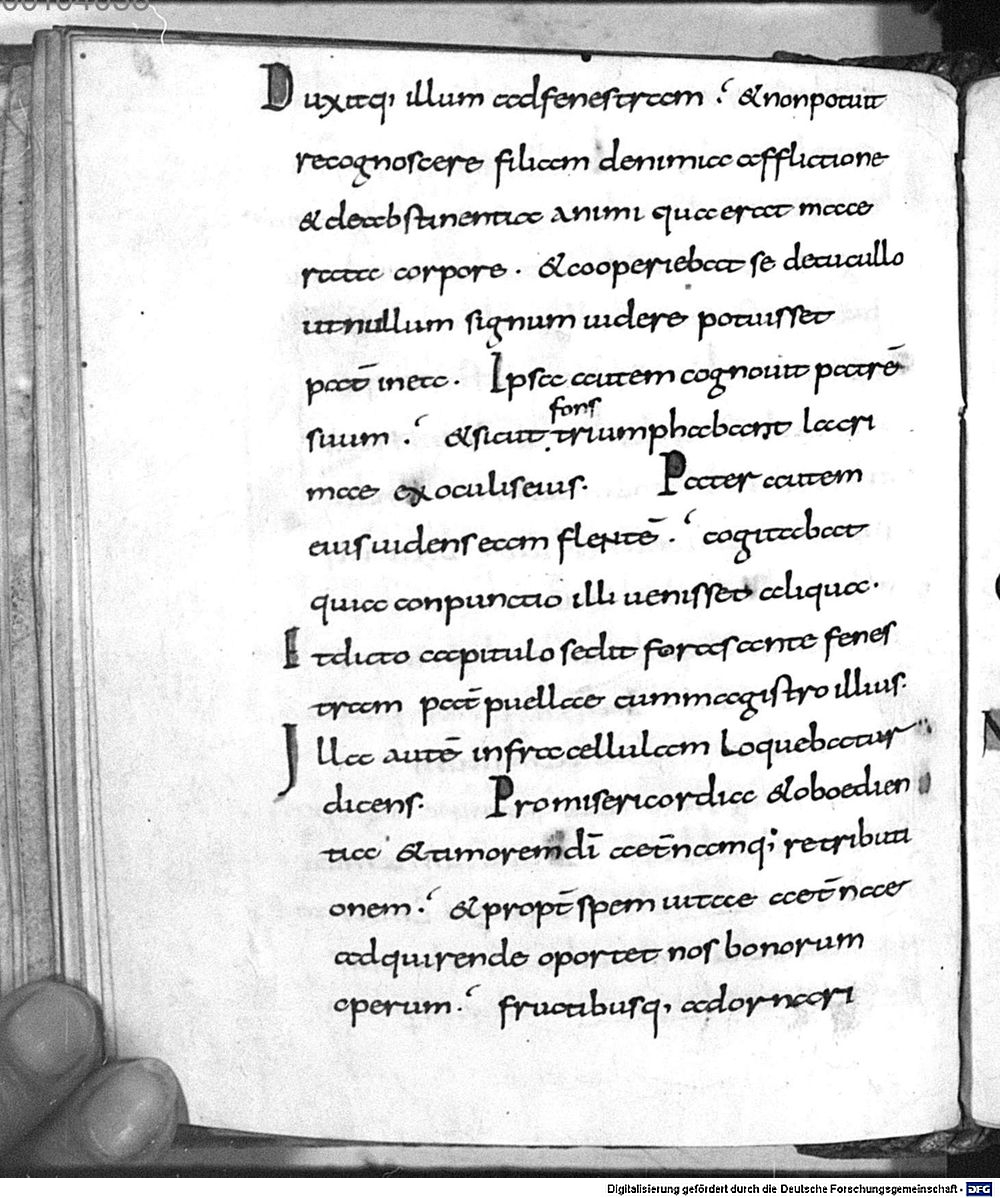 Duxitq; illum adfenestram : &nonpotuit
recognoscere filiam denimia afflictione
&deabstinentia animi qua erat mace
rata corpore . &cooperiebat se decucullo
utnullum signum uidere potuisset
pat̄ inea . Ipsa autem cognouit patrē
fons
suum : &sicut triumphabant lacri
mae exoculiseius. Pater autem
eiusuidenseam flentē : cogitabat
quia conpunctio illi uenisset aliqua.
Etdicto capitulo sedit forasante fenes
tram pat̄ puellae cummagistro illius.
Illa autē infracellulam Loquebatur
dicens. Promisericordia &oboedien
tia &timoremdī aet̄namq; retributi
onem : &propt̄ spem uitae aet̄nae
adquirende oportet nos bonorum
operum : fructibusq; adornari
Digitalisierung gefördert durch die Deutsche Forschungsgemeinschaft - DFG